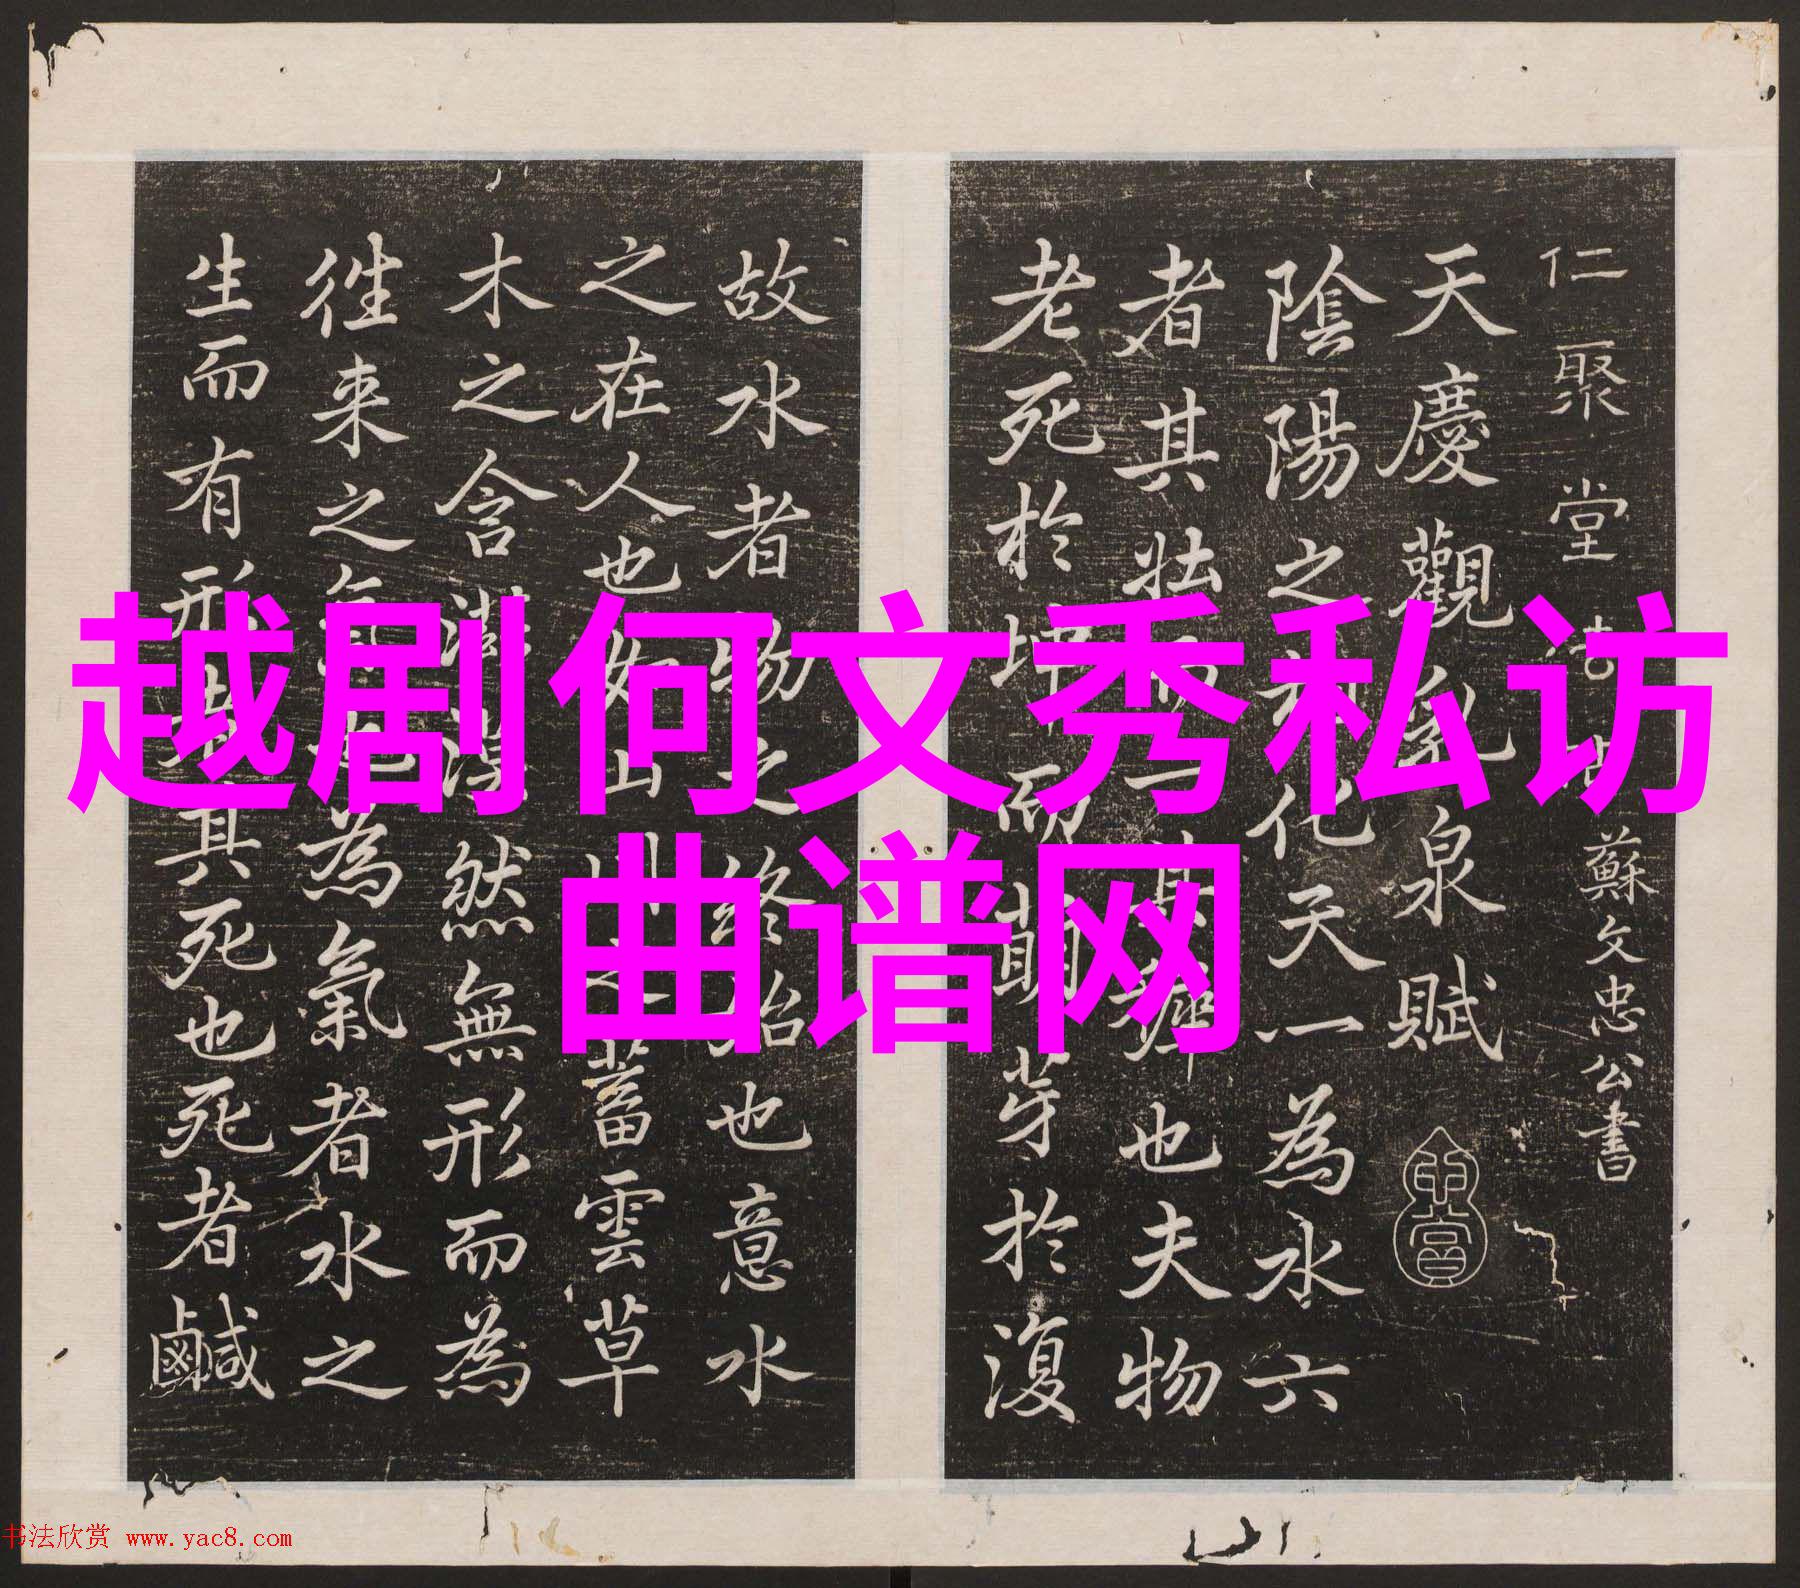 越剧何文秀私访
曲谱网
仁聚堂法 蘇文忠公書
天慶觀乳泉賦
陰陽之相化天一為水六
者其壯而一者其稚也夫物
老死於坤而萌芽於復
故水者物之終始也意水
之在人也如山川之蓄雲草
木之含滋 然無形而為
徃来之氣也為氣者水之
生而有形 其死也死者鹹
书法欣赏 www.yac8.com